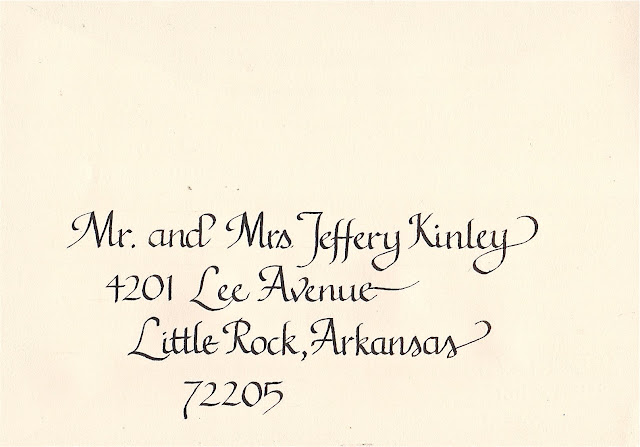 Mr. and Mrs Jeffery Kinley
4201 Lee Avenue
Little Rock, Arkansas
72205